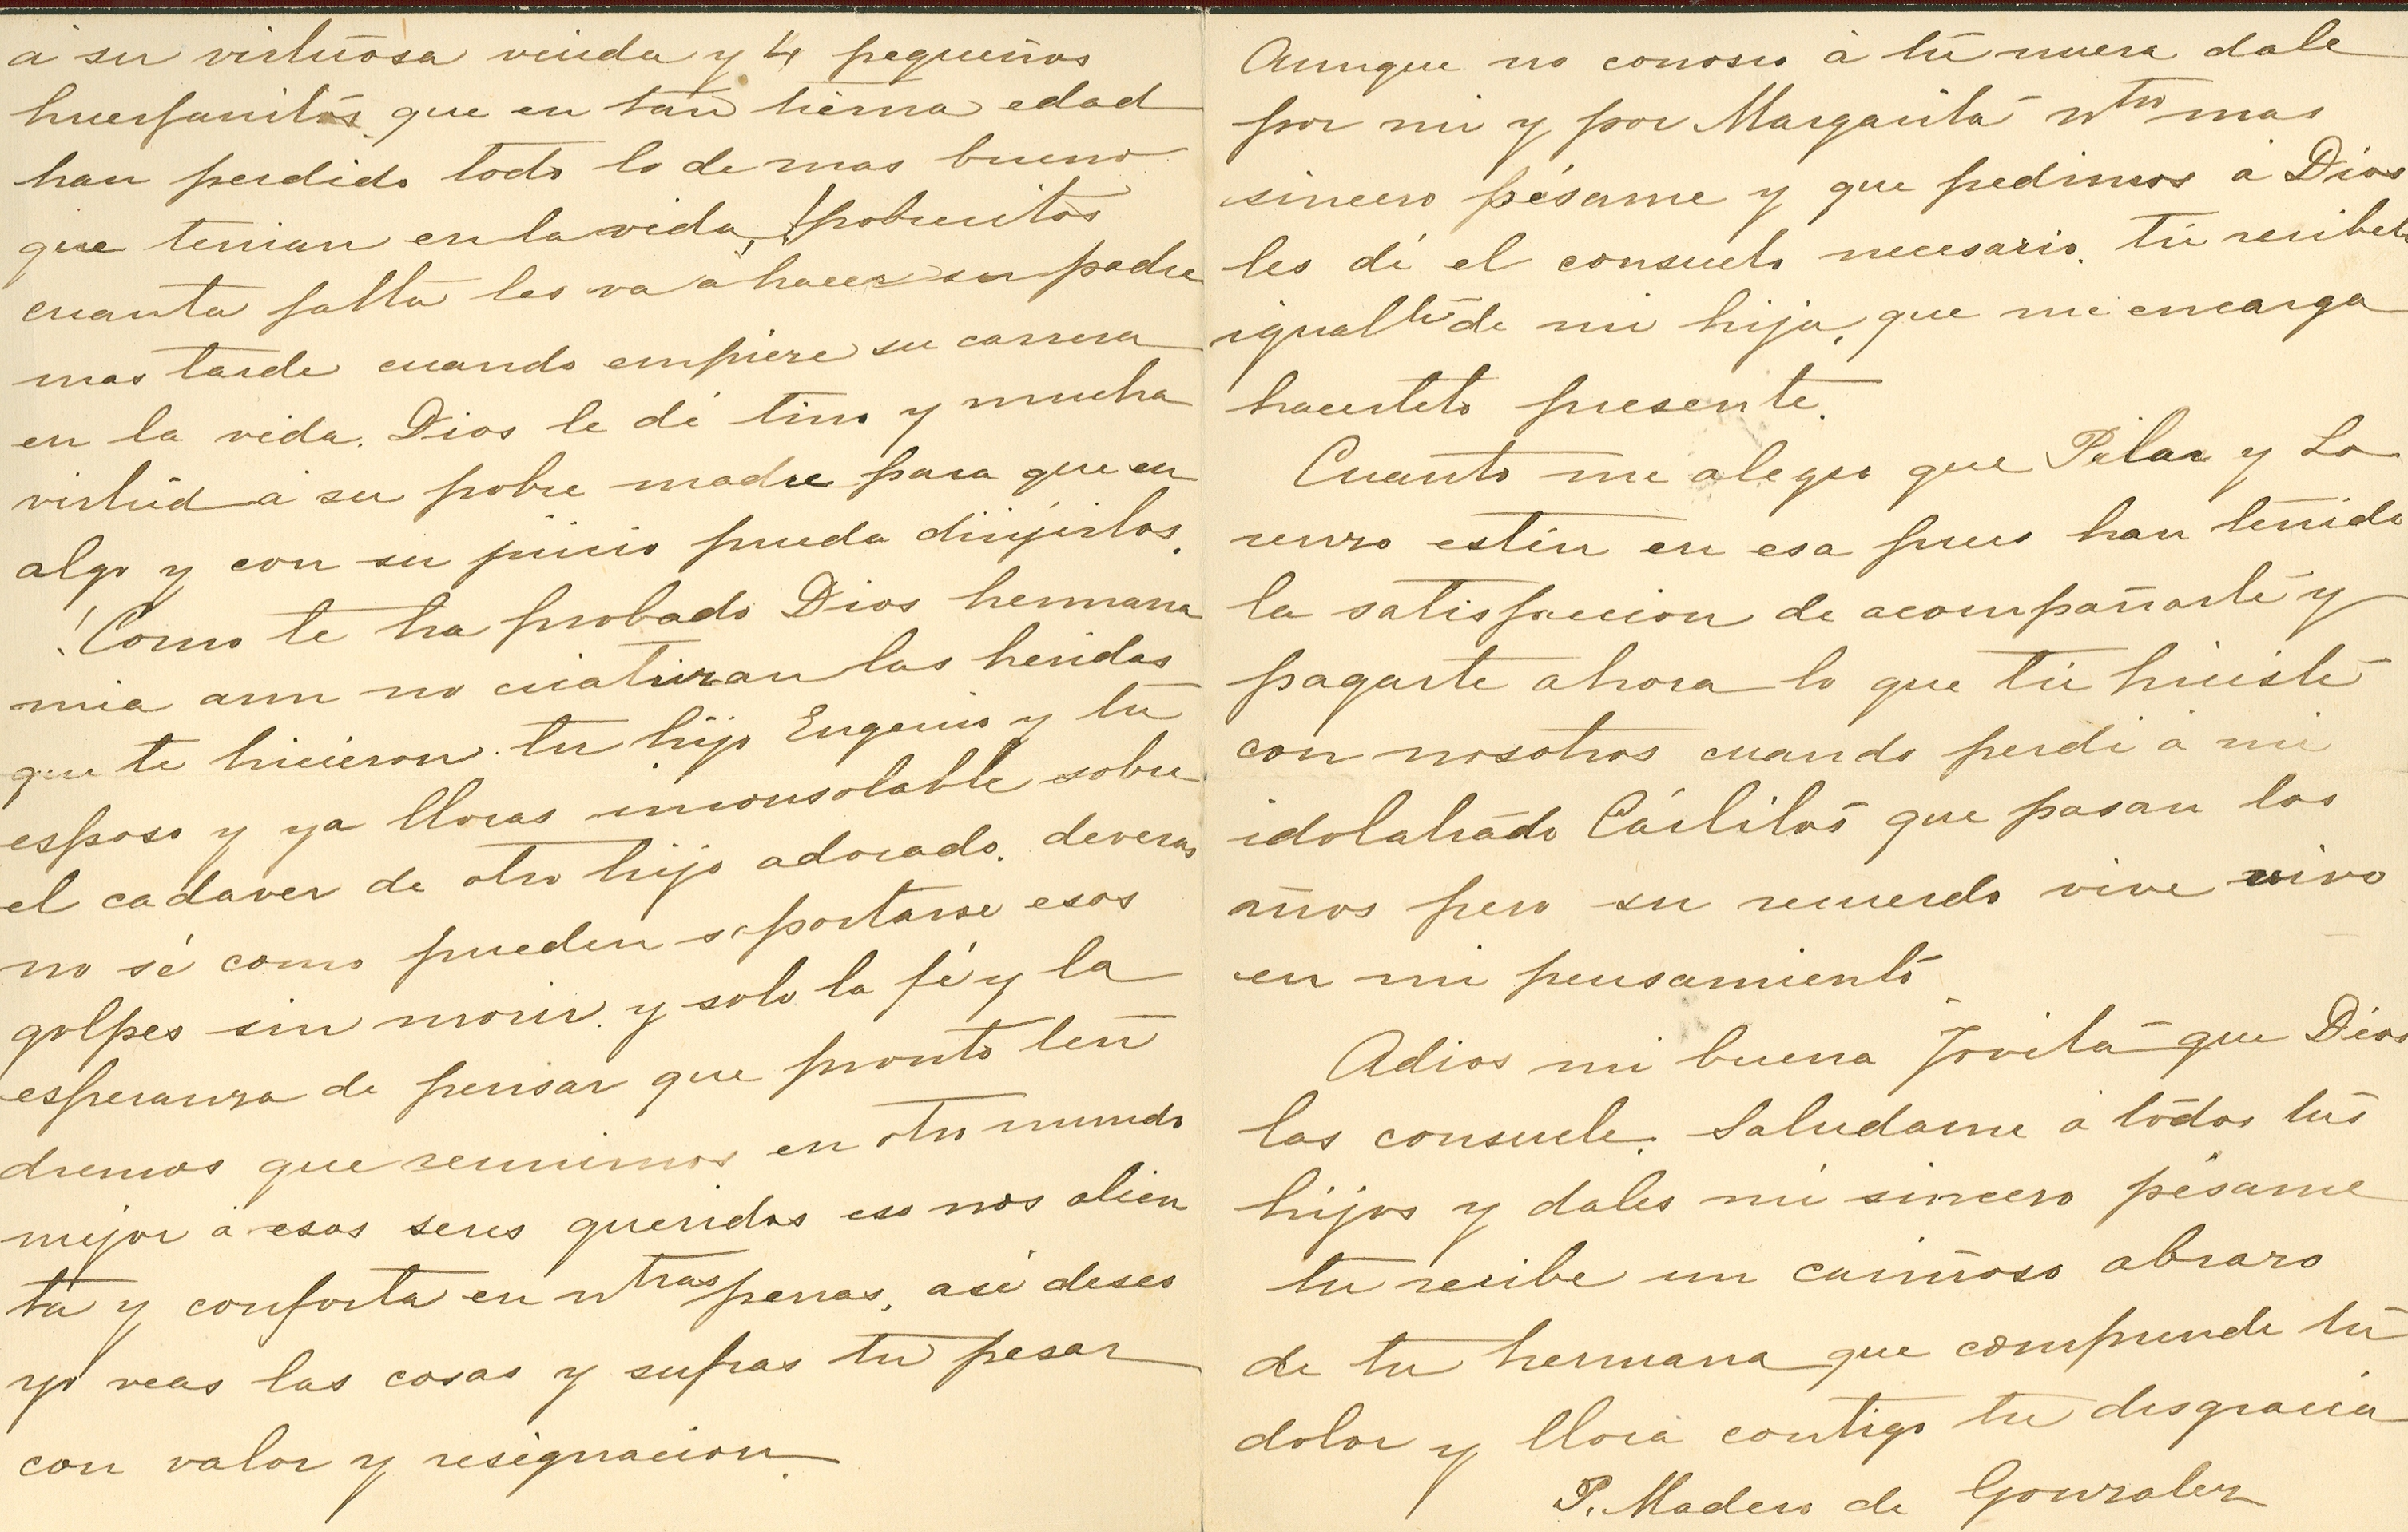 á su virtuosa viuda y 4 pequeños
huerfanitos que en tan tierna edad
han perdido todo lo de mas bueno
que tenian en la vida, ¡pobrecitos
cuanta falta les va á hacer su padre
mas tarde cuando empiere su carrera
en la vida. Dios le dé tino y mucha
virtud á su pobre madre para que en
algo y con su juicio pueda dirijirlos.
¡Como te ha probado Dios hermana
mia aun no cicatrizan las heridas
que te hicieron tu hijo Eugenio y tu
esposo y ya lloras inconsolable sobre
el cadaver de otro hijo adorado. deveras
no sé como pueden soportarse esos
golpes sin morir. y solo la fé y la
esperanza de pensar que pronto ten
dremos que reunirnos en otro mundo
mejor á esos seres queridos eso nos alien
ta y conforta en ntras penas. así deseo
yo veas las cosas y sufras tu pesar
con valor y resignacion.
Aunque no conosco á tú nuera dale
por mi y por Margarita ntro mas
sincero pésame y que pedimos á Dios
les dé el consuelo necesario. tú recibelo
igualte de mi hija, que me encarga
hacertelo presente.
Cuanto me alegro que Pilar y Lo
renzo estén en esa pues han tenido
la satisfaccion de acompañarte y
pagarte ahora lo que tú hiciste
con nosotros cuando perdi á mi
idolatrado Cárlitos que pasan los
años pero su recuerdo vive vivo
en mi pensamiento
Adios mi buena Jovita que Dios
las consuele. Saludame á todos tus
hijos y dales mi sincero pésame
tu recibe un cariñoso abrazo
de tu hermana que comprende tu
dolor y llora contigo tu desgracia
P. Madero de Gonzalez